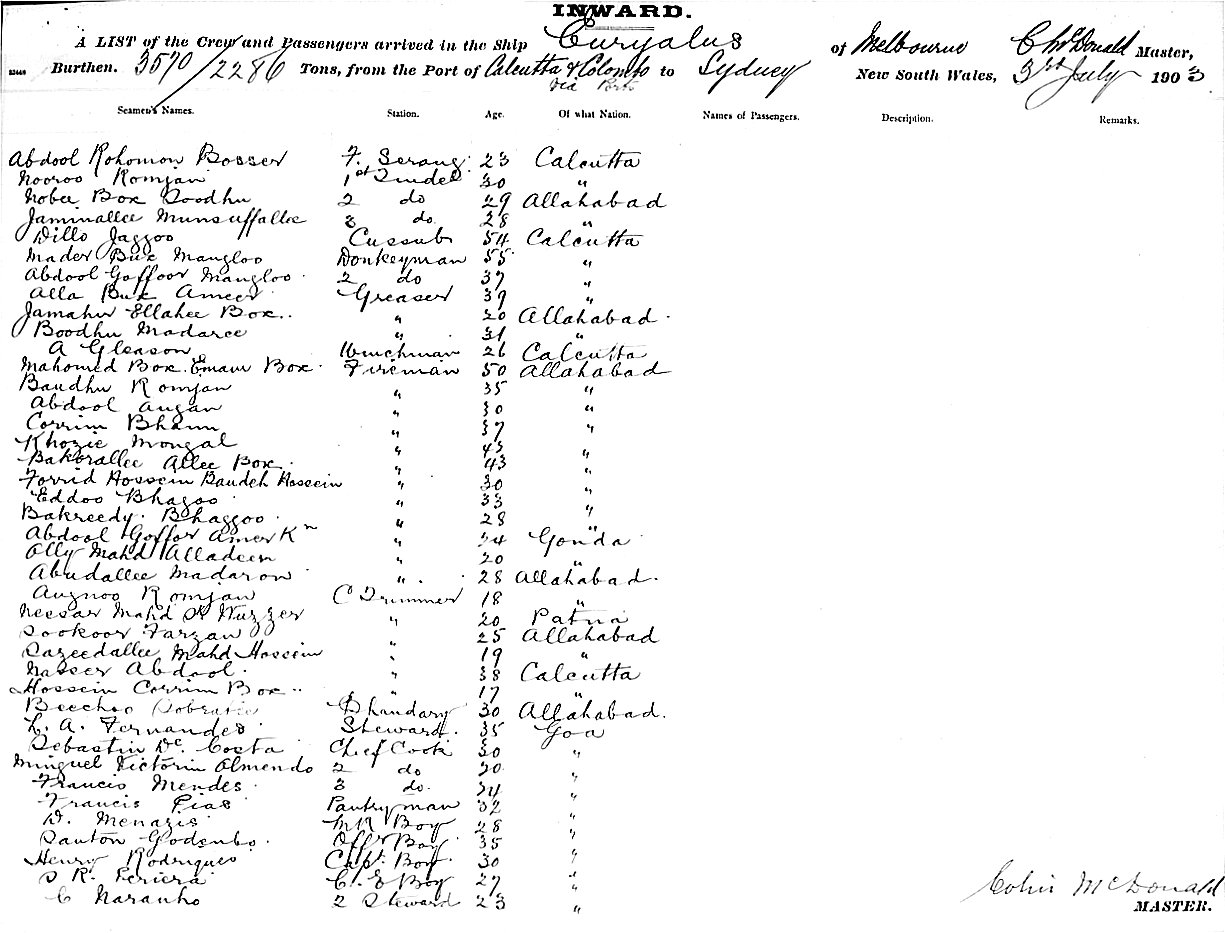 INWARD.
A LIST of the Crew and Passengers arrived in the Ship Euryalus of Melbourne C McDonald Master,
Burthen. 3570/2286 Tons, from the Port of Calcutta & Colombo to Sydney New South Wales, 31st July 1903
via Ports
Seamen's Names. Station. Age. Of what Nation. Names of Passengers. Description. Remarks.
Abdool Rohomon Bosser F. Serang 23 Calcutta
Nooroo Romjan 1st Tindel 30 "
Nobee Box Boodhu 2 do 29 Allahabad
Jaminallee Munsuffallee 3 do 28 "
Dillo Jaggoo Cussub 54 Calcutta
Mader Bux Mangloo Donkeyman 55 "
Abdool Goffoor Mangloo 2 do 37 "
Alla Bux Ameer Greaser 39 "
Jamahir Ellahee Box " 20 Allahabad
Boodhu Madaree " 31 "
A Gleason Winchman 26 Calcutta
Mahomed Box Emam Box Fireman 50 Allahabad
Baudhu Romjan " 35 "
Abdool Augan " 30 "
Corrim Bhanu " 37 "
Khozie Mongal " 43 "
Bakorallee Allee Box " 43 "
Forrid Hossein Baudeh Hossein " 30 "
Eddoo Bhagoo " 33 "
Bakreedy Bhaggoo " 28 "
Abdool Goffor Amer Kn " 34 Gonda
Olly Mahd Alladeen " 20 "
Abudallee Madarow " 28 Allahabad
Augnoo Romjan C Trimmer 18 "
Neesar Mahd Wuzzer " 20 Patna
Sookoor Farzan " 25 Allahabad
Sazeedallee Mahd Hossein " 19 "
Nasser Abdool " 38 Calcutta
Hossein Corrim Box " 17 "
Beechoo Bhandary 30 Allahabad
L. A. Fernandes Steward 35 Goa
Sebastin De Costa Chief Cook 30 "
Minguel Victorin Olmendo 2 do 20 "
Francis Mendes 3 do 24 "
Francis Pias Pantryman 32 "
D. Menazis MR Boy 28 "
Santon Godenho Offr Boy 35 "
Henry Rodriques Capt. Boy 30 "
S R. Periera C. E Boy 27 "
C Naranho 2 Steward 23 "
Colin McDonald
MASTER.